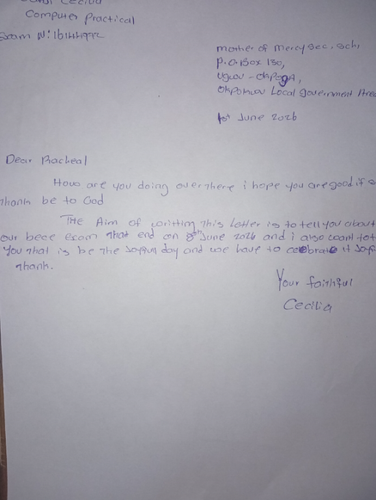 Cecilia
Computer Practical
Exam N:
mother of Mercy Sec. Sch,
P.O Box 130,
Ugwu - Okpoga,
Okpokwu Local Government Area
June 2026
Dear Racheal
How are you doing over there i hope you are good if
thank be to God
The Aim of writting this latter is to tell you about
our bece exam that end on 8th June 2026 and i also want to
you that is be the day and we have to it
thank.
Your faithful
Cecilia